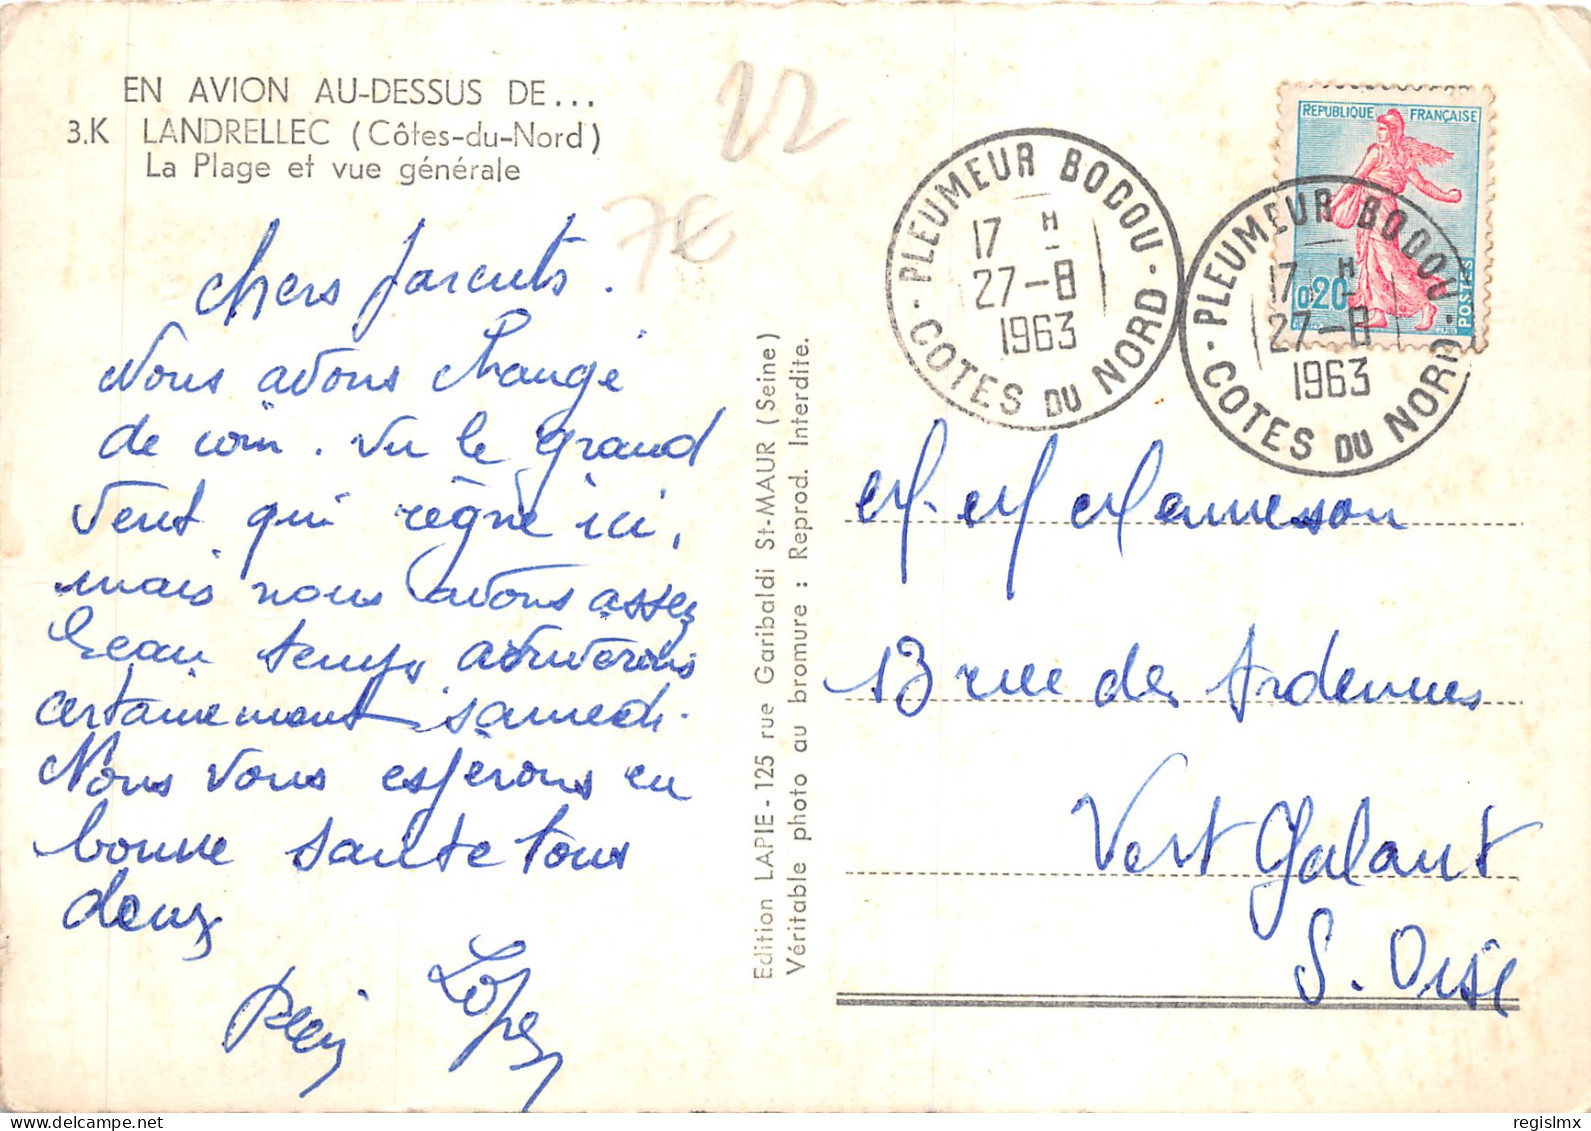 EN AVION AU-DESSUS DE...
3.K LANDRELLEC (Côtes-du-Nord)
La Plage et vue générale
22
7€
chers parents.
Nous avons change
de coin. Vu le grand
vent qui règne ici,
mais nous avons assez
beau temps
certainement samedi.
Nous vous esperons en
bonne sante tous
deux
Lopez
Edition LAPIE - 125 rue Garibaldi St-MAUR (Seine)
Véritable photo au bromure : Reprod. Interdite.
PLEUMEUR BODOU
17 H
27-8
1963
COTES DU NORD
REPUBLIQUE FRANÇAISE
0,20
POSTES
PLEUMEUR BODOU
17 H
27-8
1963
COTES DU NORD
M. M
13 rue des Ardennes
Vert Galant
S. Oise
regisImx